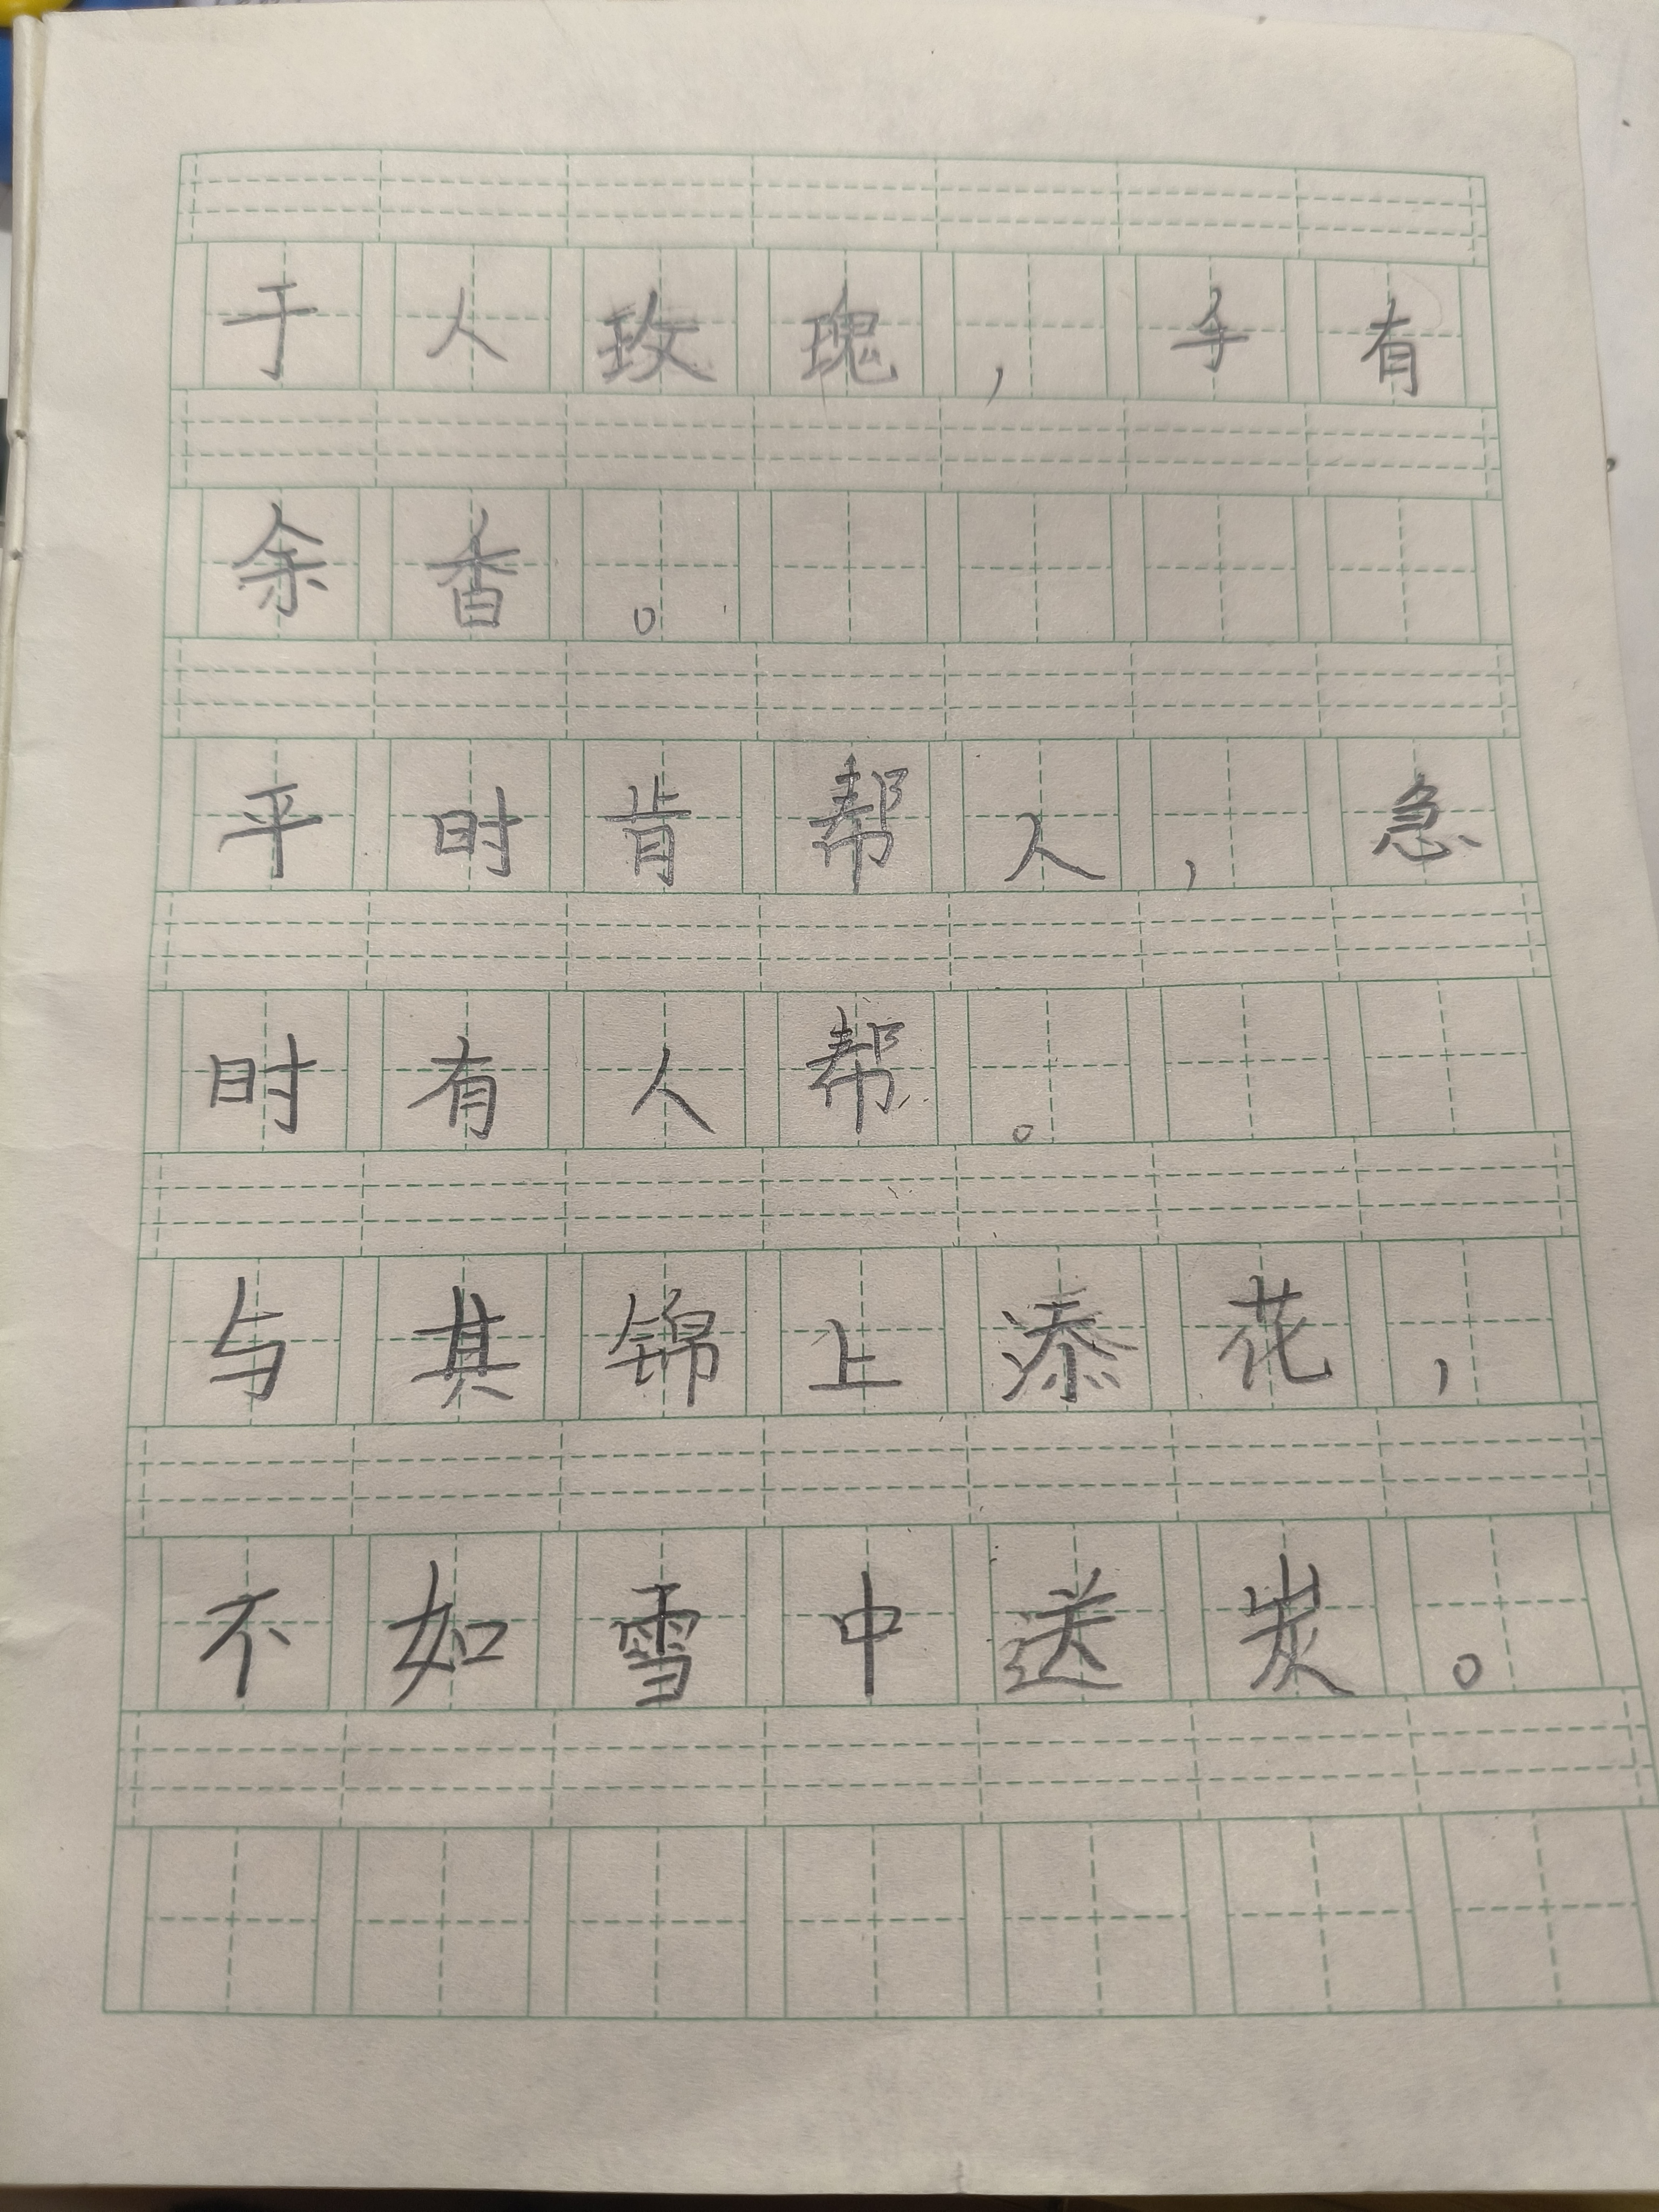 于人玫瑰，手有
余香。
平时肯帮人，急
时有人帮。
与其锦上添花，
不如雪中送炭。